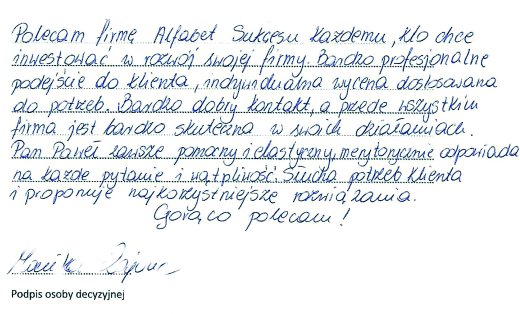 Polecam firmę Alfabet Sukcesu każdemu, kto chce
inwestować w rozwój swojej firmy. Bardzo profesjonalne
podejście do klienta, indywidualna wycena dostosowana
do potrzeb. Bardzo dobry kontakt, a przede wszystkim
firma jest bardzo skuteczna w swoich działaniach.
Pan Paweł zawsze pomocny i elastyczny, merytorycznie odpowiada
na każde pytanie i wątpliwość. Słucha potrzeb klienta
i proponuje najkorzystniejsze rozwiązania.
Gorąco polecam!
Podpis osoby decyzyjnej